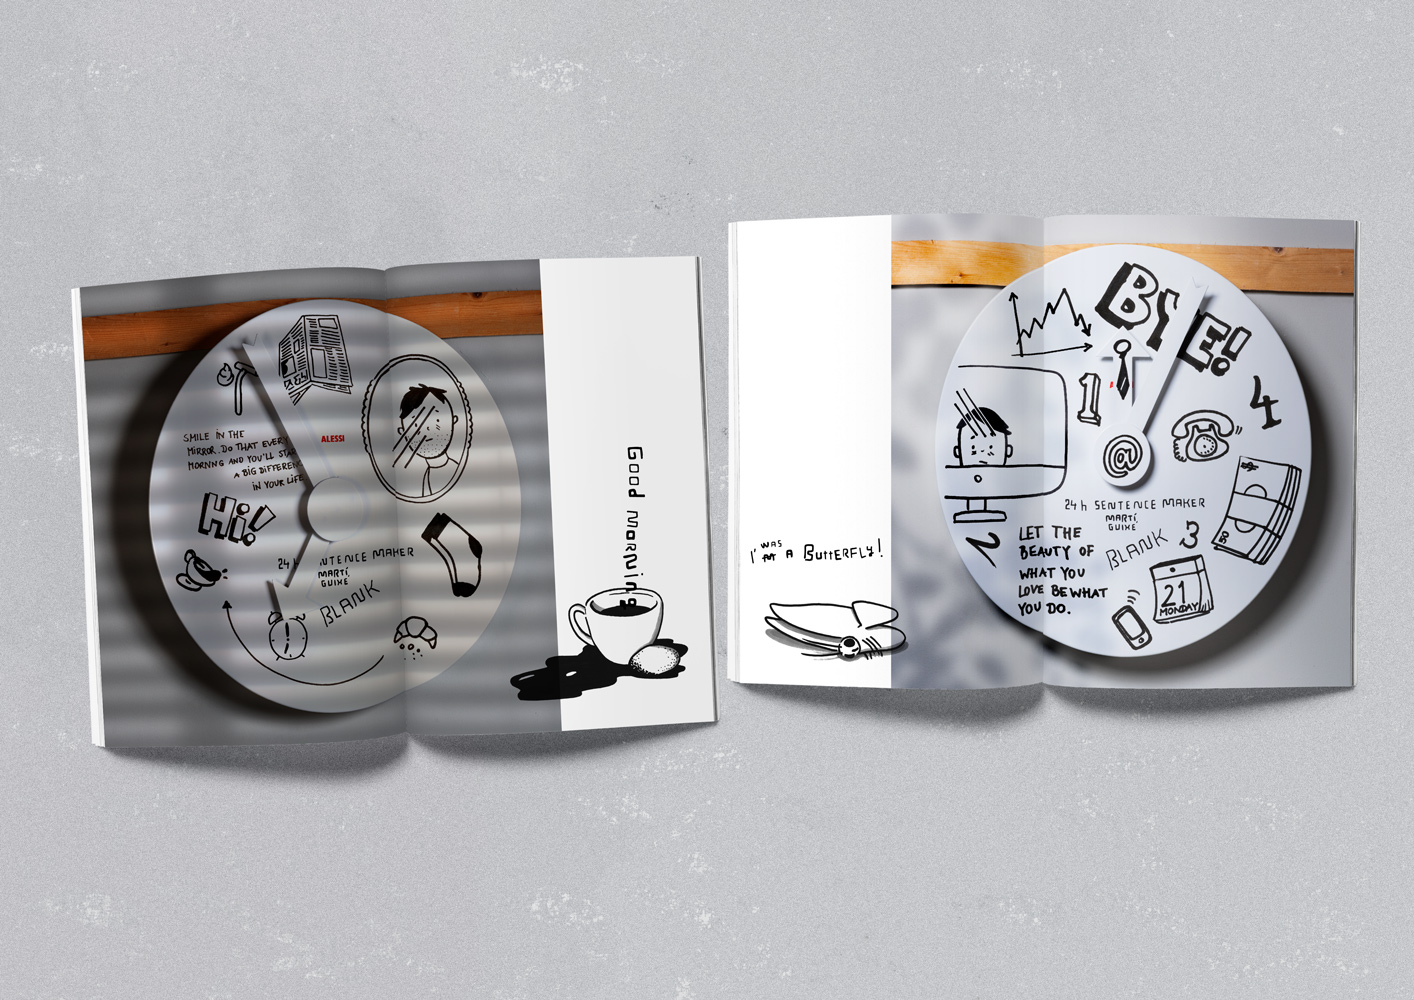 SMILE IN THE
MIRROR. DO THAT EVERY
MORNNG AND YOU'LL STAR
A BIG DIFFEREN
IN YOUR LIFE
ALESSI
Hi!
24 h SENTENCE MAKER
MARTÍ
GUIXÉ
BLANK
Good morning
I' WAS A BUTTERFLY!
BYE!
1
4
@
24 h SENTENCE MAKER
MARTÍ,
GUIXÉ
BLANK
3
2
LET THE
BEAUTY OF
WHAT YOU
LOVE BE WHAT
YOU DO.
21
MONDAY
50